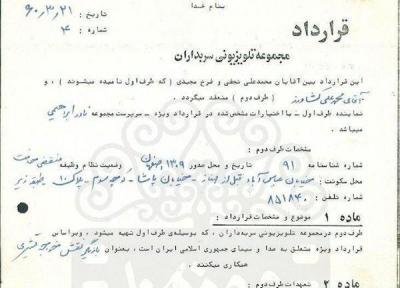 بنام خدا
تاریخ : ۶۰/۳/۲۱
شماره : ۴
قرارداد
مجموعه تلویزیونی سربداران
این قرارداد بین آقایان محمدعلی نجفی و فرخ مجیدی (که طرف اول نامیده میشوند) و
آقای محمدعلی کشاورز (طرف دوم) منعقد میگردد .
نماینده طرف اول - با اختیارات مشخص شده در قرارداد ویژه - سرپرست مجموعه نادر ابراهیمی
میباشد .
مشخصات طرف دوم :
شماره شناسنامه ۹۱ تاریخ و محل صدور ۱۳۰۹ وضعیت نظام وظیفه
محل سکونت : خیابان عباس آباد قبل از خیابان پاشا - کوچه سوم - پلاک ۱۰ طبقه زیر
شماره تلفن : ۸۵۱۸۴۰
ماده ۱ موضوع و مشخصات قرارداد :
طرف دوم در مجموعه تلویزیونی سربداران، که بوسیله ی طرف اول تهیه میشود، و بر اساس
قرارداد ویژه متعلق به صدا و سیمای جمهوری اسلامی ایران است، بعنوان بازیگر نقش خواجه قشیری
همکاری میکنند .
ماده ۲ تعهدات طرف دوم :